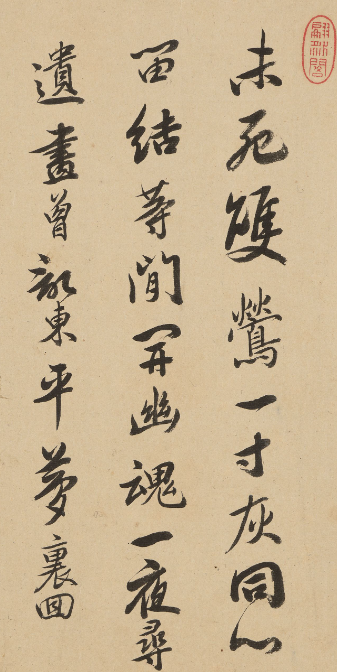 未死雙鶯一寸灰同心
留結等閒開幽魂一夜尋
遺畫曾記東平夢裏回